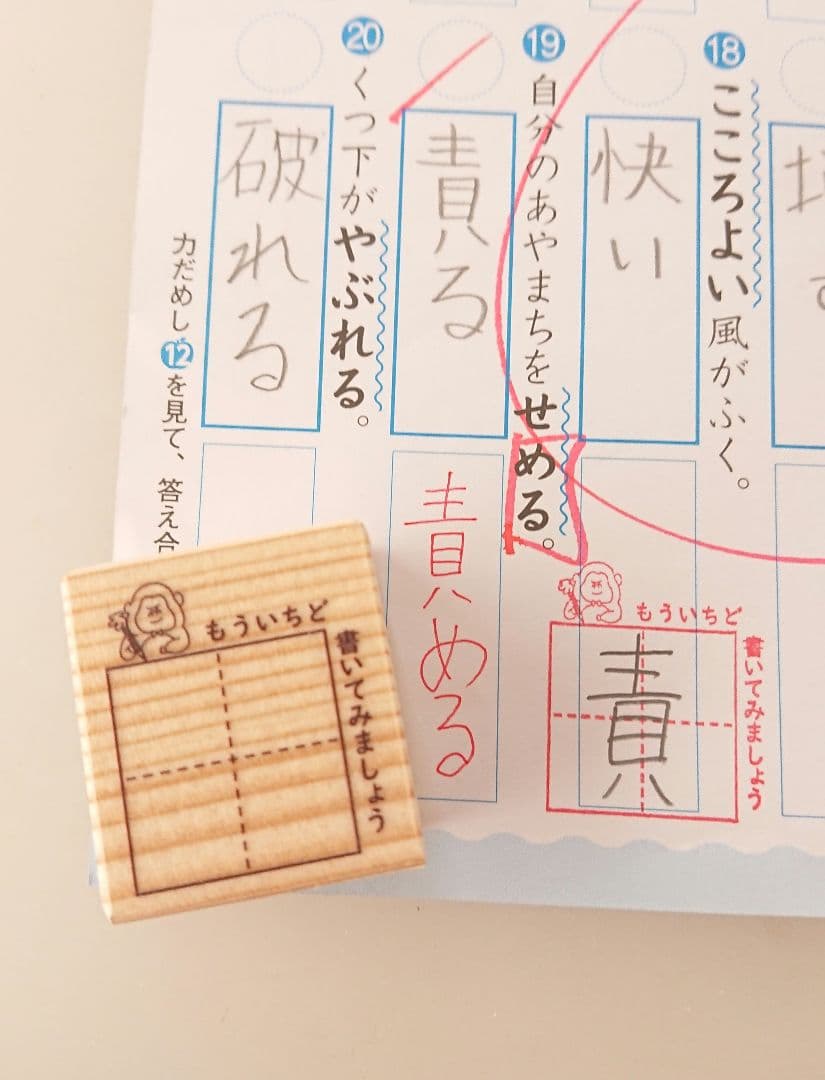 ⑱ こころよい風がふく。
快い
⑲ 自分のあやまちをせめる。
責る
責める
もういちど
書いてみましょう
責
⑳ くつ下がやぶれる。
破れる
力だめし⑫を見て、答え合
もういちど
書いてみましょう